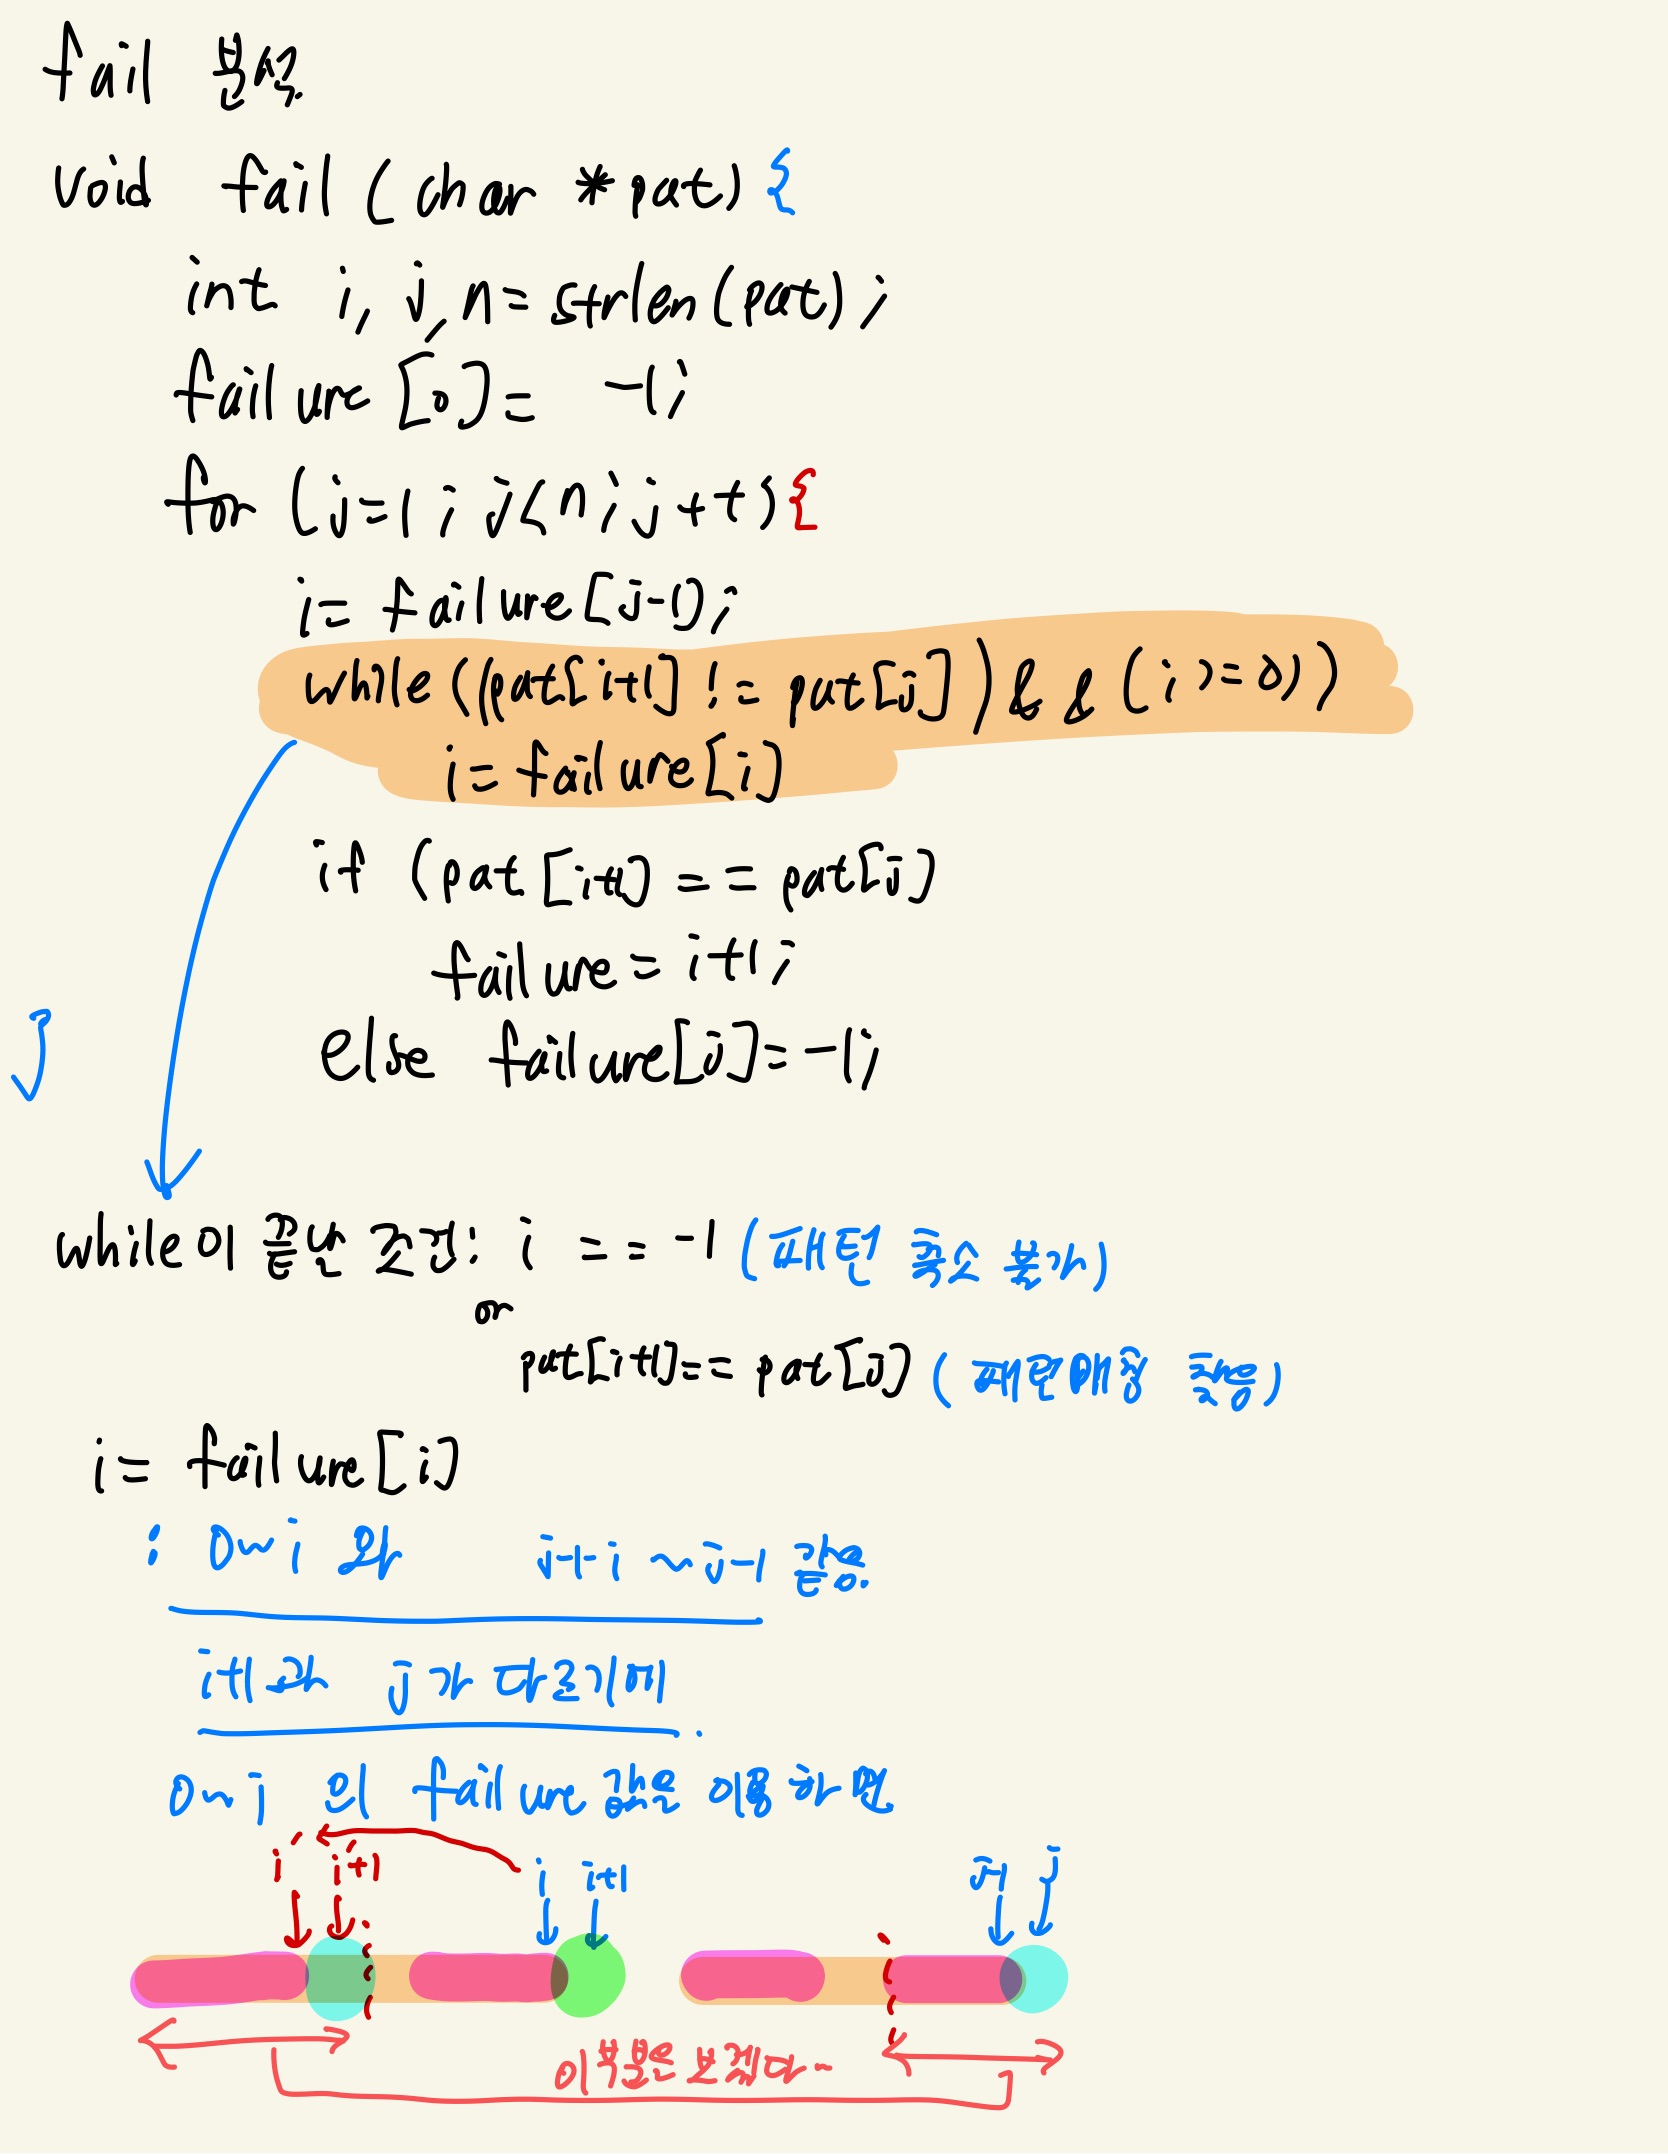 fail 분석
void fail (char *pat) {
int i, j, n = strlen(pat);
failure [0] = -1;
for (j=1; j<n; j++) {
i= failure[j-1];
while ((pat[i+1] != pat[j]) && (i >= 0))
i= failure[i]
if (pat [i+1] == pat[j]
failure = i+1;
else failure[j]= -1;
}
while이 끝난 조건: i == -1 (패턴 축소 불가)
or
pat[i+1]== pat[j] (패턴매칭 활용)
i= failure[i]
: 0~i 와 j-1-i ~ j-1 같음.
i+1과 j가 다르기에.
0~i 의 failure 값을 이용하면
i' i'+1 i i+1 j-1 j
이 부분은 보겠다~